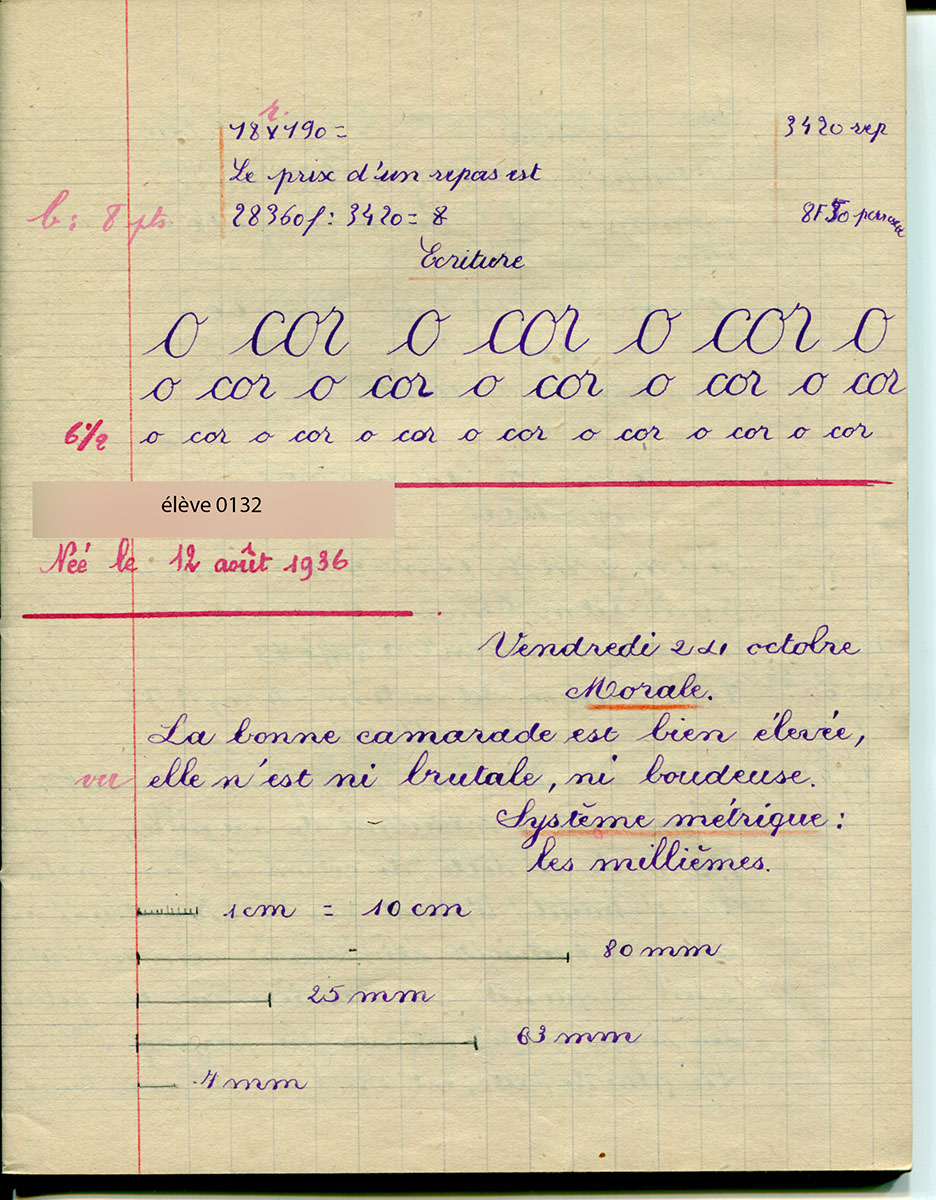 r.
18 x 190 = 3420 rep
Le prix d'un repas est
b : 8 pts 28360f : 3420 = 8 8F30
Ecriture
o cor o cor o cor o
o cor o cor o cor o cor o cor
6 1/2 o cor o cor o cor o cor o cor o cor o cor
élève 0132
Neé le 12 août 1936
Vendredi 24 octobre
Morale.
La bonne camarade est bien élevée,
vu elle n'est ni brutale, ni boudeuse.
Système métrique :
les millièmes.
1 cm = 10 cm
80 mm
25 mm
63 mm
4 mm